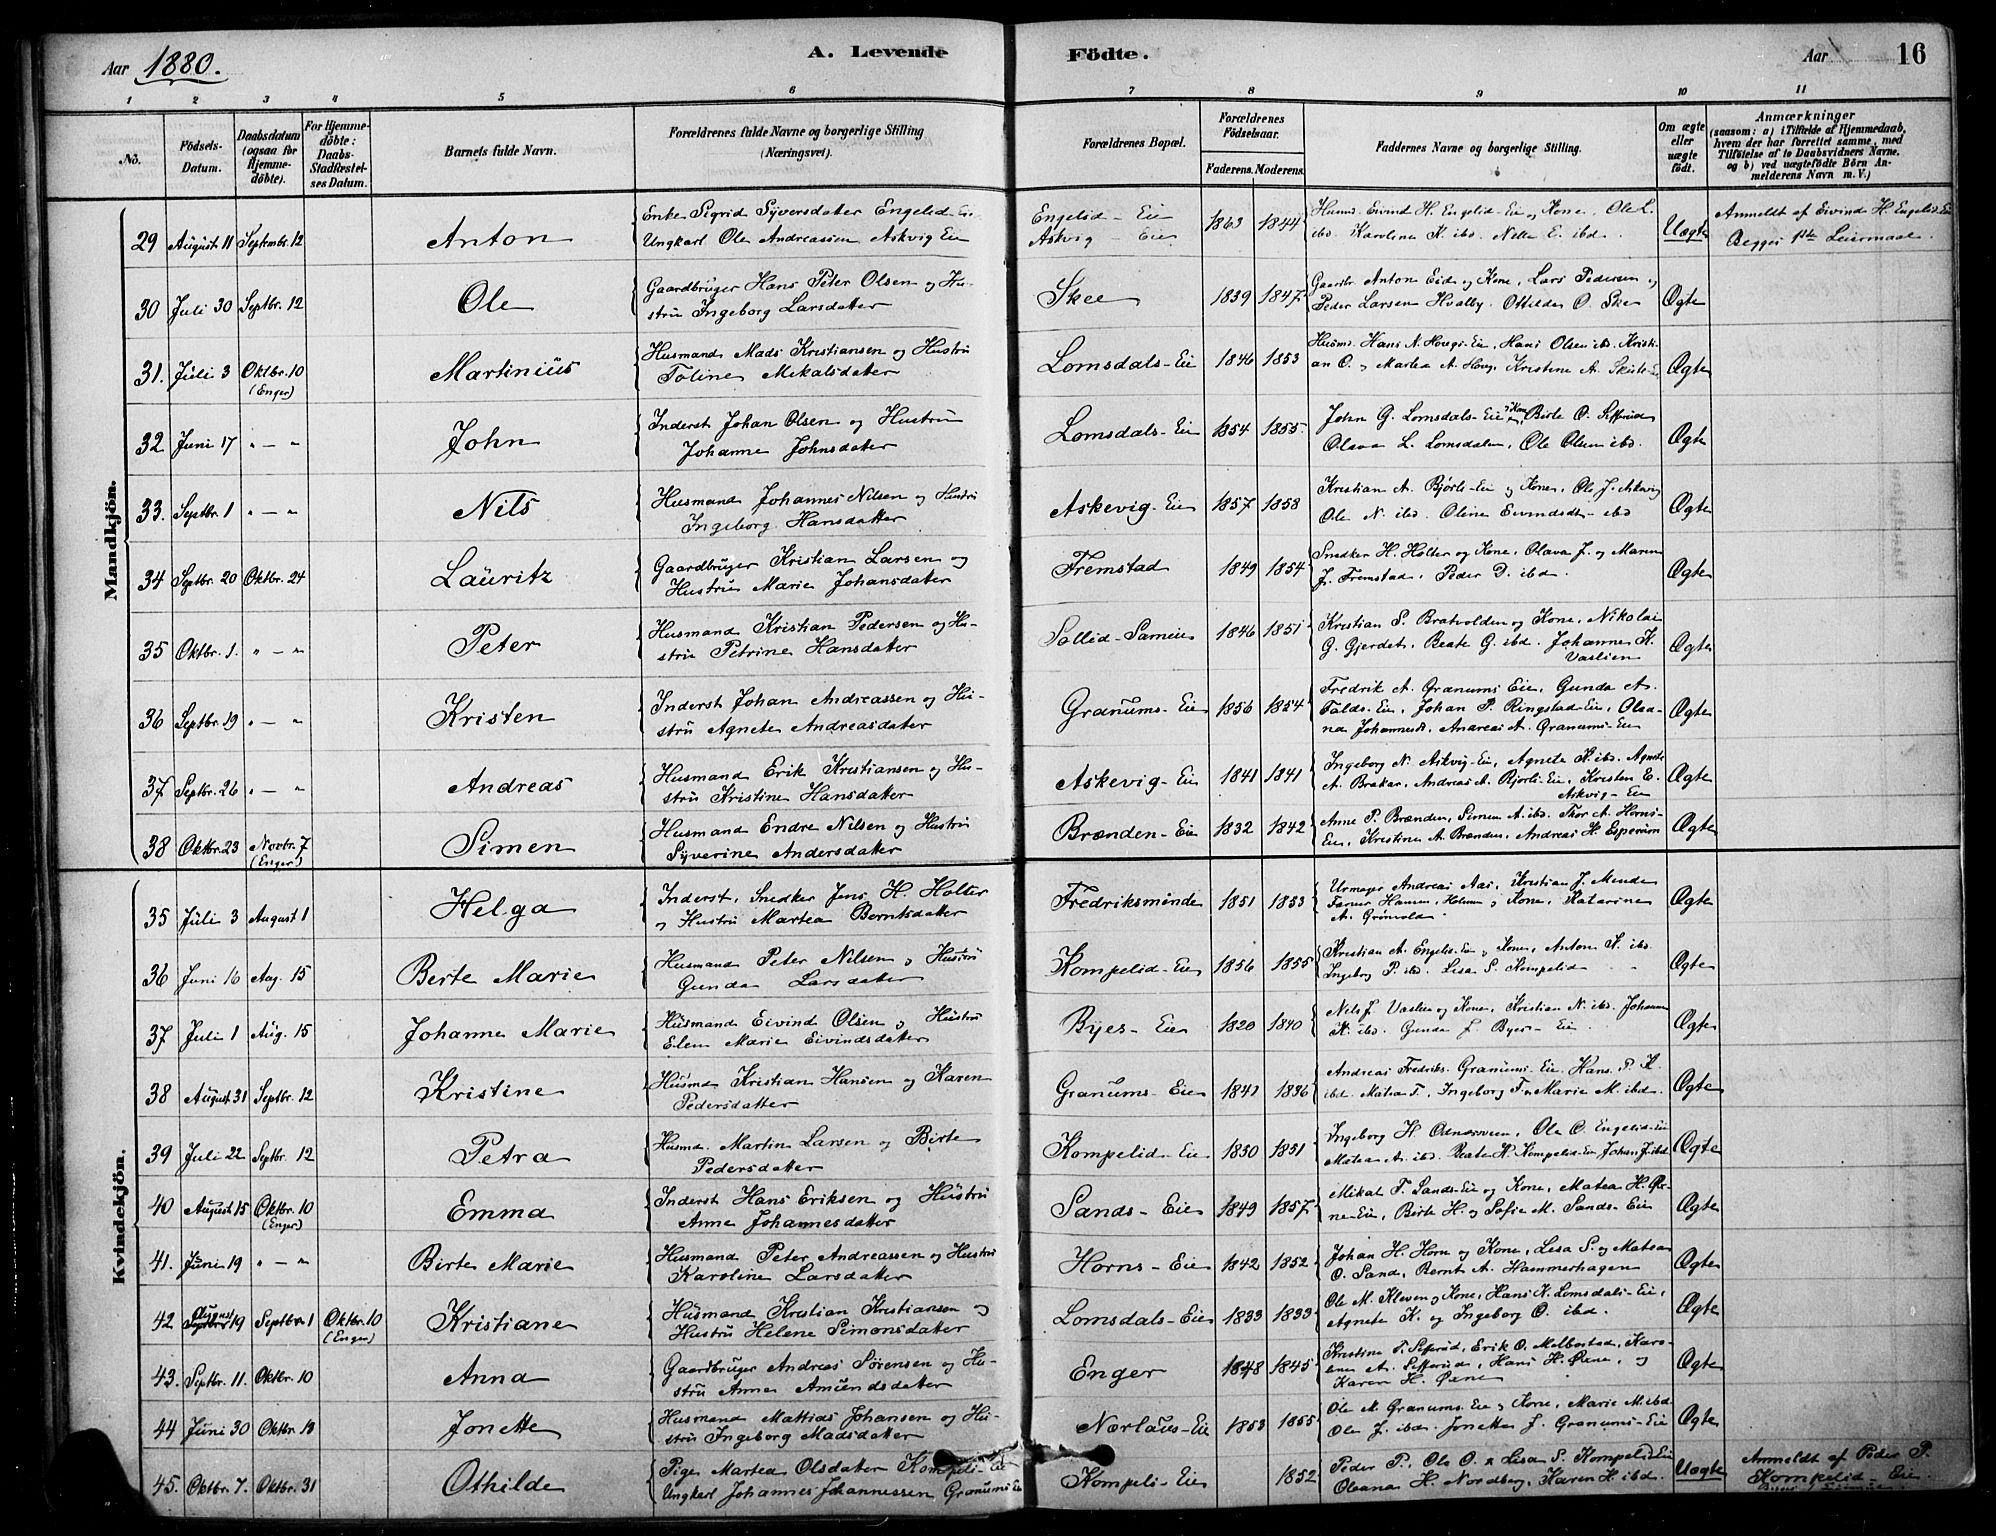 Aar 1880. A. Levende Födte. Aar 16
1 2 3 4 5 6 7 8 9 10 11
No. Födsels-Datum. Daabsdatum (ogsaa for Hjemmedöbte). For Hjemmedöbte: Daabs-Stadfæstelses Datum. Barnets fulde Navn. Forældrenes fulde Navne og borgerlige Stilling (Næringsvei). Forældrenes Bopæl. Forældrenes Födselsaar. Faderens. Moderens. Faddernes Navne og borgerlige Stilling. Om ægte eller uægte födt. Anmærkninger (saasom: a) i Tilfælde af Hjemmedaab, hvem der har forrettet samme, med Tilföielse af to Daabsvidners Navne, og b) ved uægtefödte Börn Anmelderens Navn m. V.)
Mandkjön.
29 August 11 Septembr. 12 Anton Enke Sigrid Syversdatter Engelid Eie Engelid - Eie 1863 1844 Husmd. Eivind H. Engelid-Eie og Kone, Ole L. Uægte Anmeldt af Eivind H. Engelid-Eie
Ungkarl Ole Andreassen Askvig Eie Askvig Eie ibd. Karoline K. ibd. Nella E. ibd. Begges 1ste Leiermaal.
30 Juli 30 Septbr. 12 Ole Gaardbruger Hans Peter Olsen og Hu- Skee 1839 1847 Gaardbr. Anton Eid og Kone, Lars Pedersen og Ægte
stru Ingeborg Larsdatter Peder Larsen Hvalby. Ottilde O. Skee
31. Juli 3 Oktbr. 10 Martinius Husmand Mads Kristiansen og Hustru Lomsdals-Eie 1846 1853 Husmd. Hans A. Hougs-Eie, Hans Olsen ibd. Kristi- Ægte
(Enger) Toline Mikalsdatter an O. og Martea A. Houg, Kristine A.
32 Juni 17 " - " John Inderst Johan Olsen og Hustru Lomsdals-Eie 1854 1855. John G. Lomsdals-Eie og Kone, Birte O. Sefferud Ægte
Johanne Johnsdatter Olava L. Lomsdalen, Ole Olsen ibd.
33. Septbr. 1 " - " Nils Husmand Johannes Nilsen og Hustru Askevig-Eie 1857 1858 Kristian A. Bjørli-Eie og Kone, Ole J. Askvig Ægte
Ingeborg Hansdatter Ole N. ibd. Oline Eivindsdt. ibd
34 Septbr. 20 Oktbr. 24 Lauritz Gaardbruger Kristian Larsen og Fremstad 1849 1854 Snedker H. Holter og Kone, Olava J. og Maren Ægte
Hustru Marie Johansdatter J. Fremstad, Peder D. ibd.
35 Oktbr. 1. " - " Peter Husmand Kristian Pedersen og Hu- Sollid-Sameie 1846 1851 Kristian S. Bratvolden og Kone, Nikolai Ægte
stru Petrine Hansdatter G. Gjerdet, Beate G. ibd. Johannes K.
Vaslien
36 Septbr. 19 " - " Kristen Inderst Johan Andreassen og Hu- Granums-Eie 1856 1854 Fredrik A. Granums Eie, Gunda A. Ægte
stru Agnete Andreasdatter Falds-Eie, Johan P. Ringstad-Eie, Olea-
na Johannesdt. Andreas A. Granums-Eie
37 Septbr. 26 " - " Andreas Husmand Erik Kristiansen og Hu- Askevig-Eie 1841 1841 Ingeborg N. Askvig-Eie, Agnete K. ibd. Agnete Ægte
stru Kristine Hansdatter A. Brakar, Andreas A. Bjorli-Eie, Kristen E.
Askvig-Eie
38 Oktbr. 23 Novbr. 7 Simen Husmand Endre Nilsen og Hustru Brænden-Eie 1832 1842 Anne P. Brænden, Simen A. ibd. Thor A. Horns- Ægte
(Enger) Syverine Andersdatter Eie, Kristine A. Brænden, Andreas H. Esperum
Kvindekjön.
35 Juli 3 August 1 Helga Inderst, Snedker Jens H. Holter Fredriksminde 1851 1853 Urmager Andreas Aas, Kristian J. Mende Ægte
og Hustru Martea Berntsdatter Farver Hansen, Holmen og Kone, Katarine
A. Grønvold
36 Juni 16 Aug. 15 Berte Marie Husmand Peter Nilsen og Hustru Kompelid-Eie 1856 1855 Kristian A. Engelid-Eie og Kone, Anton K. ibd. Ægte
Gunda Larsdatter Ingeborg P. ibd. Lisa S. Kompelid
37 Juli 1 Aug. 15 Johanne Marie Husmand Eivind Olsen og Hustru Byes-Eie 1820 1840 Nils J. Vaslien og Kone, Kristian N. ibd. Johanne Ægte
Elen Marie Eivindsdatter K. ibd. Gunda J. Byes-Eie
38 August 31 Septbr. 12 Kristine Husmd Kristian Hansen og Karen Granums-Eie 1841 1836 Andreas Fredriks. Granums-Eie, Hans P. K. Ægte
Pedersdatter ibd. Matea F., Ingeborg F. Marie M. ibd.
39 Juli 22 Septbr. 12 Petra Husmd. Martin Larsen og Birte Kompelid-Eie 1850 1851 Ingeborg H. Odnæsveen, Ole O. Engelid-Eie Ægte
Pedersdatter Matea A. ibd. Beate H. Kompelid-Eie Johan J. ibd
40 August 15 Oktbr. 10 Emma Inderst Hans Eriksen og Hustru Sands-Eie 1849 1857 Mikal T. Sands-Eie og Kone, Matea H. Øe- Ægte
(Enger) Anne Johannesdatter ne-Eie, Birte H. og Sofie M. Sands-Eie
41. Juni 19 " - " Birte Marie Husmand Peter Andreassen og Hustru Horns-Eie 1842 1852 Johan H. Horn og Kone, Lisa S. og Matea Ægte
Karoline Larsdatter O. Sand, Bernt A. Hammerhagen
42 August 19 Septbr. 1 Oktbr. 10 Kristiane Husmand Kristian Kristiansen og Lomsdals-Eie 1833 1833 Ole M. Kleven og Kone, Hans K. Lomsdals-Eie, Ægte
(Enger) Hustru Helene Simonsdatter Agnete K. og Ingeborg O. ibd.
43. Septbr. 11. Oktbr. 10 Anna Gaardbruger Andreas Sørensen og Hu- Enger 1848 1845 Kristine T. Sefferud, Erik O. Melbostad, Karo- Ægte
stru Anne Amundsdatter ne A. Sefferud, Hans H. Øene, og
Karen H. Øene
44 Juni 30 Oktbr. 18 Jonette Husmand Mattias Johansen og Hu- Nørlaus-Eie 1853 1855 Ole M. Granums-Eie og Kone, Marie M. ibd Ægte
stru Ingeborg Madsdatter Ole J. ibd. Jonette J. Granums-Eie
45. Oktbr. 7. Oktbr. 31 Othilde Pige Martea Olsdatter Kompeli-Eie Kompeli-Eie 1852 Peder P., Ole O. & Lisa S. Kompelid Eie Uægte Anmeldt af Peder P.
Ungkarl Johannes Johannessen Granums Eie Oleana H. Nordberg, Karen H. ibd. Kompelid-Eie.